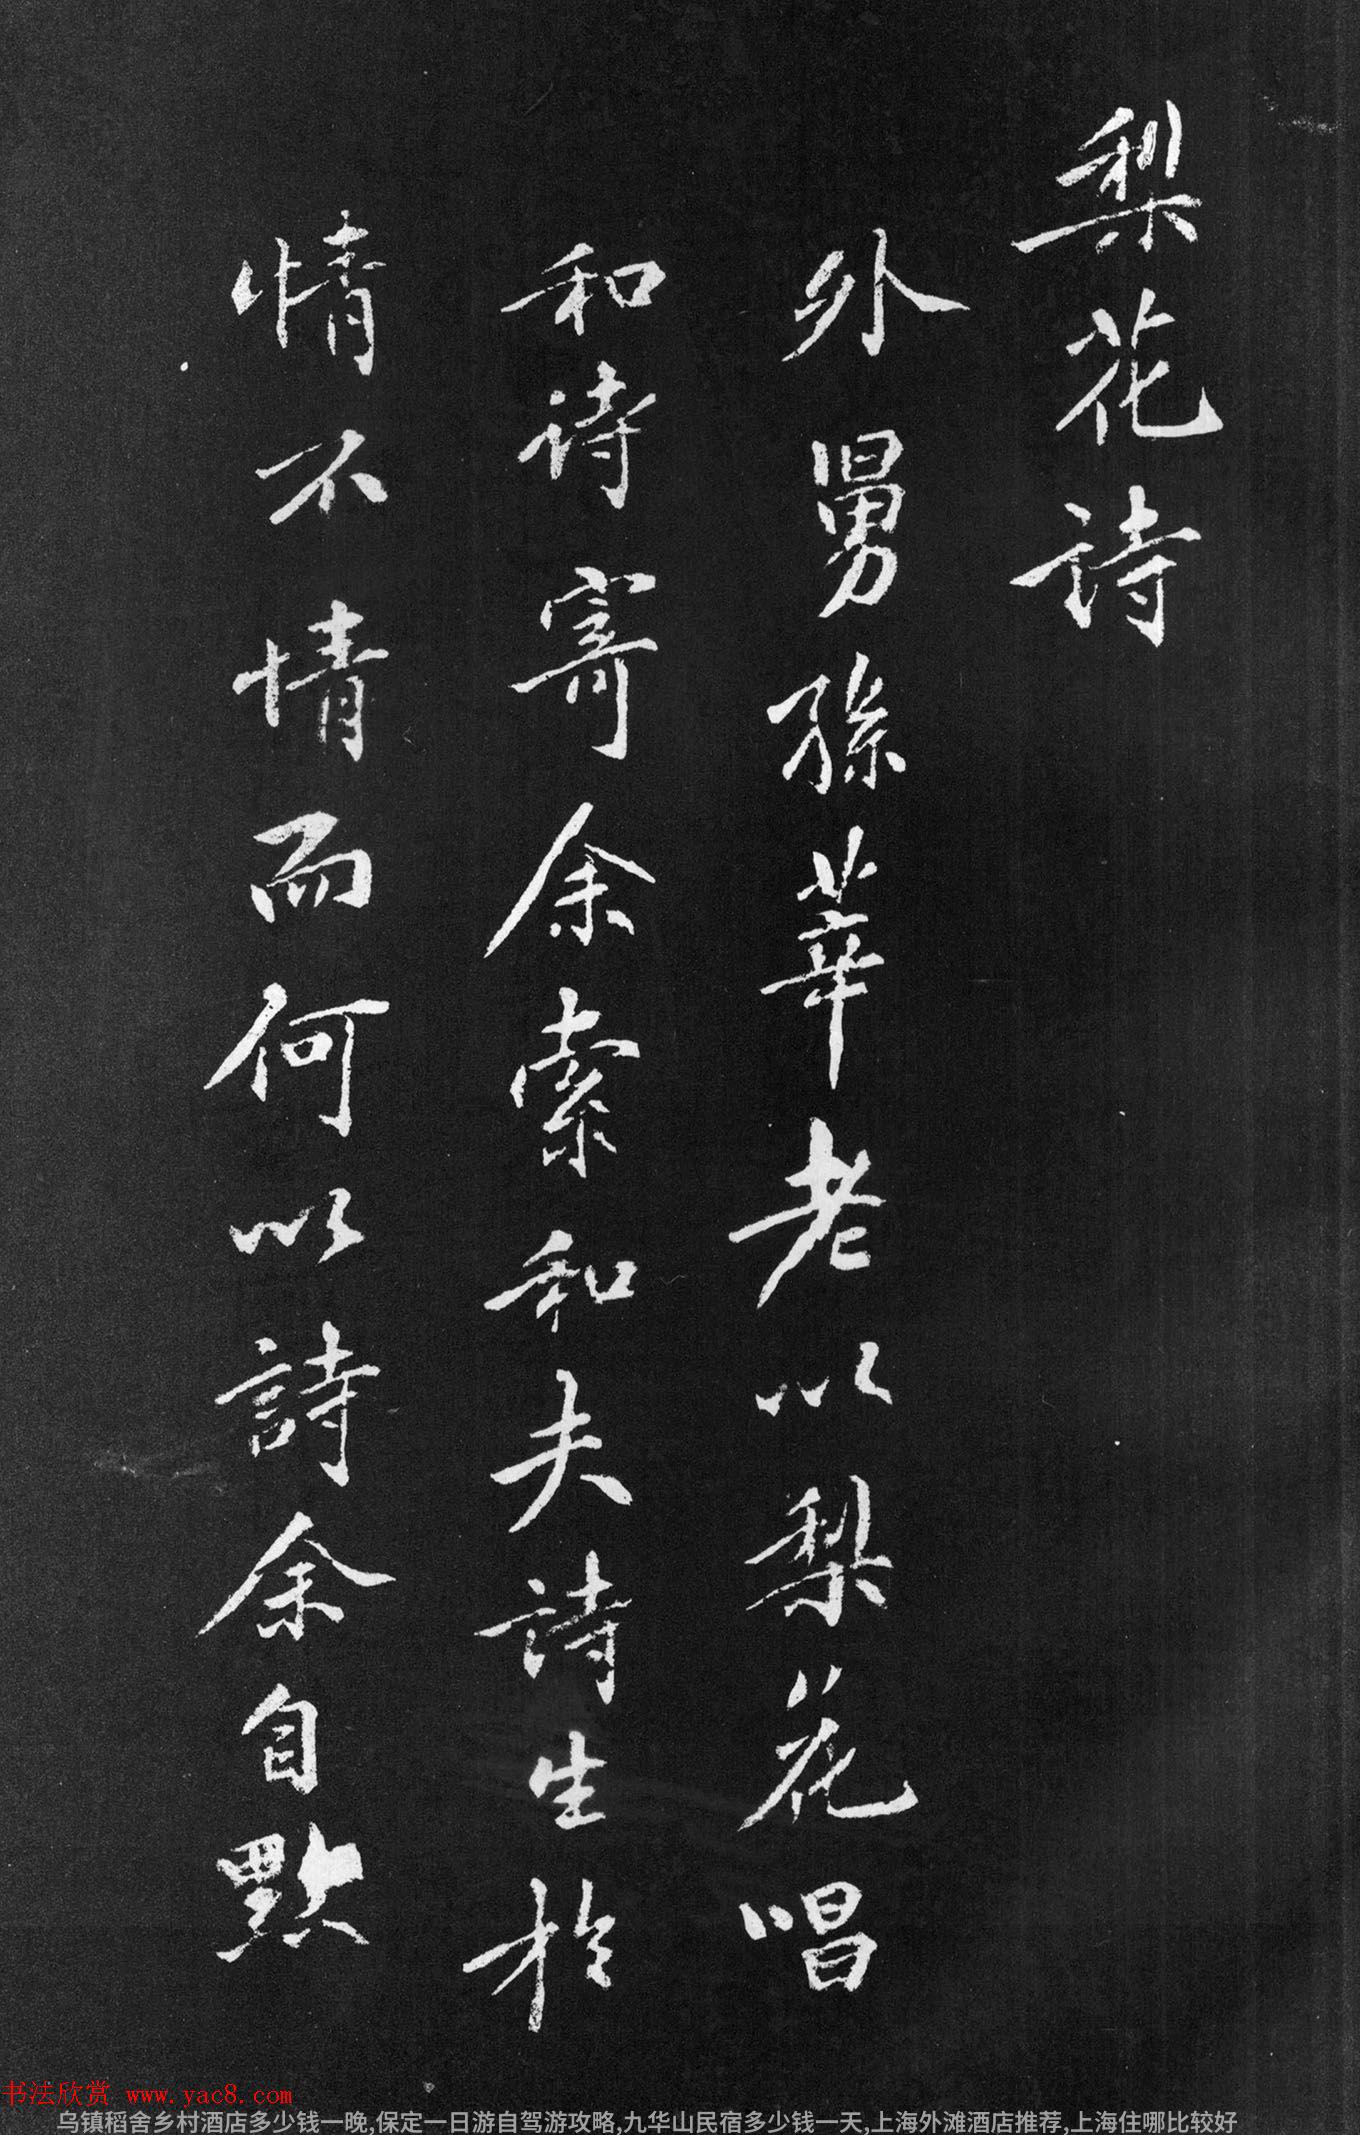 梨花詩
外舅孫莘老以梨花唱
和诗寄余索和夫詩生於
情不情而何以詩余自默
书法欣赏 www.yac8.com
乌镇稻舍乡村酒店多少钱一晚,保定一日游自驾游攻略,九华山民宿多少钱一天,上海外滩酒店推荐,上海住哪比较好